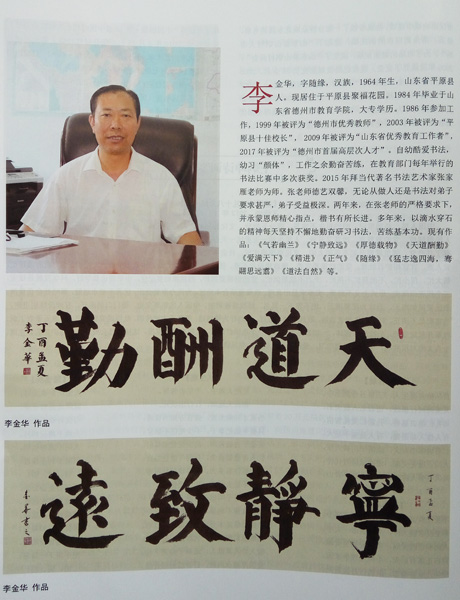 李金华，字随缘，汉族，1964年生，山东省平原县
人，现居住于平原县聚福花园，1984年毕业于山
东省德州市教育学院，大专学历。1986年参加工
作，1999年被评为“德州市优秀教师”，2003年被评为“平
原县十佳校长”，2009年被评为“山东省优秀教育工作者”，
2017年被评为“德州市首届高层次人才”。自幼酷爱书法，
幼习“颜体”，工作之余勤奋苦练，在教育部门每年举行的
书法比赛中多次获奖。2015年拜当代著名书法艺术家张家
雁老师为师，张老师德艺双馨，无论从做人还是书法对弟子
要求甚严，弟子受益极深。两年来，在张老师的严格要求下，
并承蒙恩师精心指点，楷书有所长进。多年来，以滴水穿石
的精神每天坚持不懈地勤奋研习书法，苦练基本功。现有作
品：《气若幽兰》《宁静致远》《厚德载物》《天道酬勤》
《爱满天下》《精进》《正气》《随缘》《猛志逸四海，骞
翮思远翥》《道法自然》等。
天道酬勤
丁酉孟夏
李金華
李金华 作品
丁酉孟夏
寧靜致遠
李金华 作品